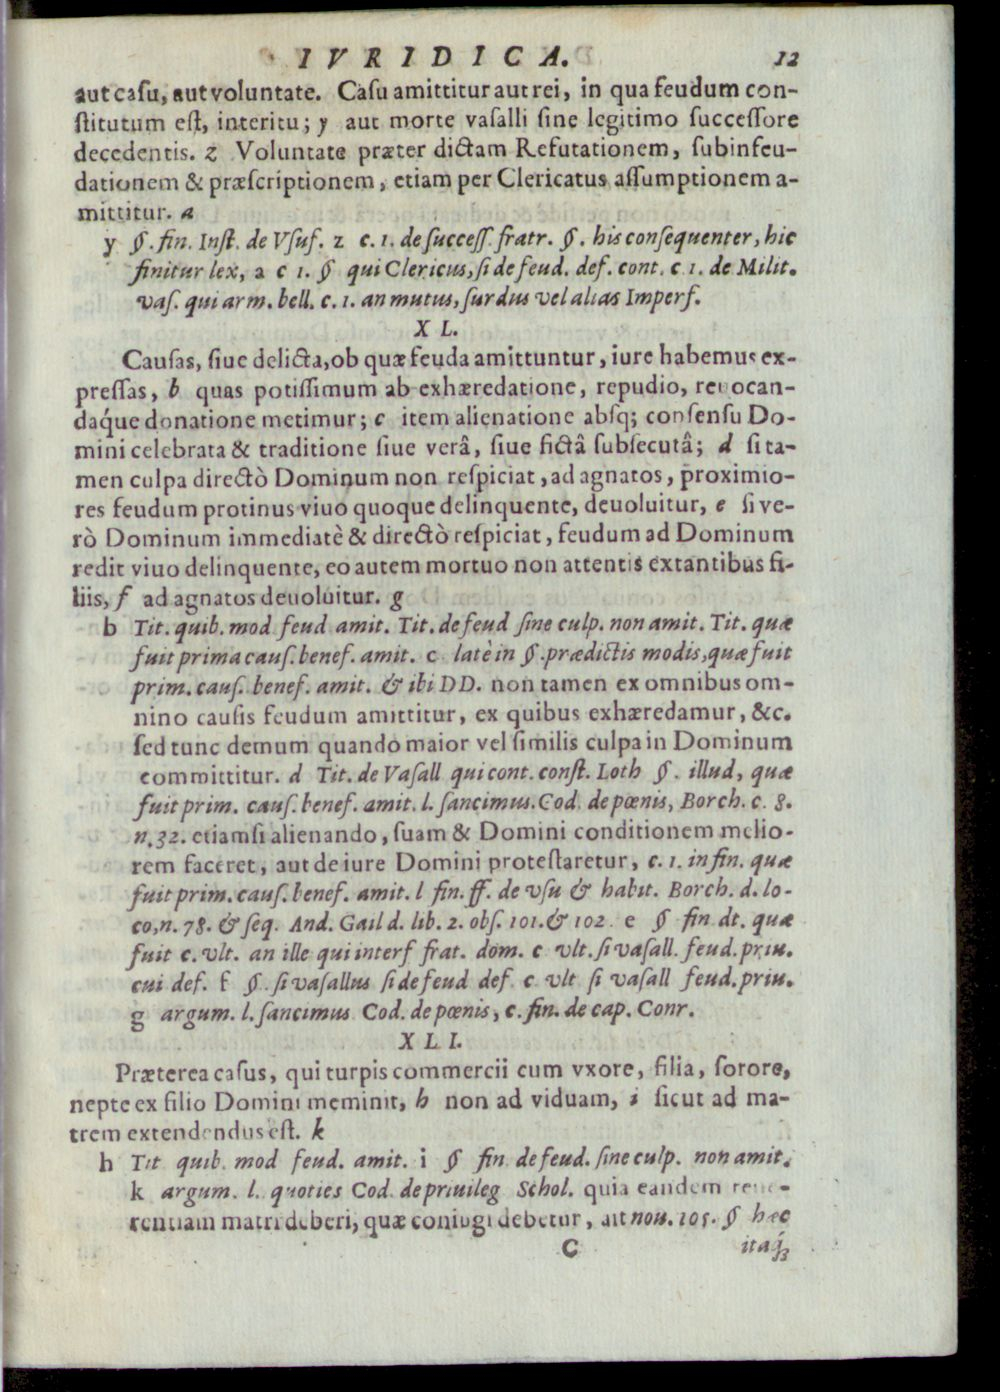 IVRIDICA. 12
aut casu, aut voluntate. Casu amittitur aut rei, in qua feudum con-
stitutum est, interitu; y aut morte vasalli sine legitimo successore
decedentis. z Voluntate præter dictam Refutationem, subinfeu-
dationem & præscriptionem, etiam per Clericatus assumptionem a-
mittitur. a
y §. fin. Inst. de Vsuf. z c. 1. de success. fratr. §. his consequenter, hic
finitur lex, a c 1. § qui Clericus, si de feud. def. cont. c. 1. de Milit.
vas. qui arm. bell. c. 1. an mutus, surdus vel alias Imperf.
XL.
Causas, siue delicta, ob quæ feuda amittuntur, iure habemus ex-
pressas, b quas potissimum ab exhæredatione, repudio, reuocan-
daq́ue donatione metimur; c item alienatione absq; consensu Do-
mini celebrata & traditione siue verâ, siue fictâ subsecutâ; d si ta-
men culpa directò Dominum non respiciat, ad agnatos, proximio-
res feudum protinus viuo quoque delinquente, deuoluitur, e si ve-
rò Dominum immediatè & directò respiciat, feudum ad Dominum
redit viuo delinquente, eo autem mortuo non attentis extantibus fi-
liis, f ad agnatos deuoluitur. g
b Tit. quib. mod feud amit. Tit. de feud sine culp. non amit. Tit. quæ
fuit prima caus. benef. amit. c latè in §. prædictis modis, quæ fuit
prim. caus. benef. amit. & ibi DD. non tamen ex omnibus om-
nino causis feudum amittitur, ex quibus exhæredamur, &c.
sed tunc demum quando maior vel similis culpa in Dominum
committitur. d Tit. de Vasall qui cont. const. Loth §. illud, quæ
fuit prim. caus. benef. amit. l. sancimus. Cod. de pœnis, Borch. c. 8.
n. 32. etiamsi alienando, suam & Domini conditionem melio-
rem faceret, aut de iure Domini protestaretur, c. 1. in fin. quæ
fuit prim. caus. benef. amit. l fin. ff. de vsu & habit. Borch. d. lo-
co, n. 78. & seq. And. Gail d. lib. 2. obs. 101. & 102 e § fin dt. quæ
fuit c. vlt. an ille qui interf frat. dom. c vlt. si vasall. feud. priu.
cui def. f §. si vasallus si de feud def c vlt si vasall feud. priu.
g argum. l. sancimus Cod. de pœnis, c. fin. de cap. Conr.
XLI.
Præterea casus, qui turpis commercii cum vxore, filia, sorore,
nepte ex filio Domini meminit, h non ad viduam, i sicut ad ma-
trem extendendus est. k
h Tit quib. mod feud. amit. i § fin de feud. sine culp. non amit.
k argum. l. quoties Cod. de priuileg Schol. quia eandem reue-
rentiam matri deberi, quæ coniugi debetur, ait nou. 105. § hæc
C itaq́3